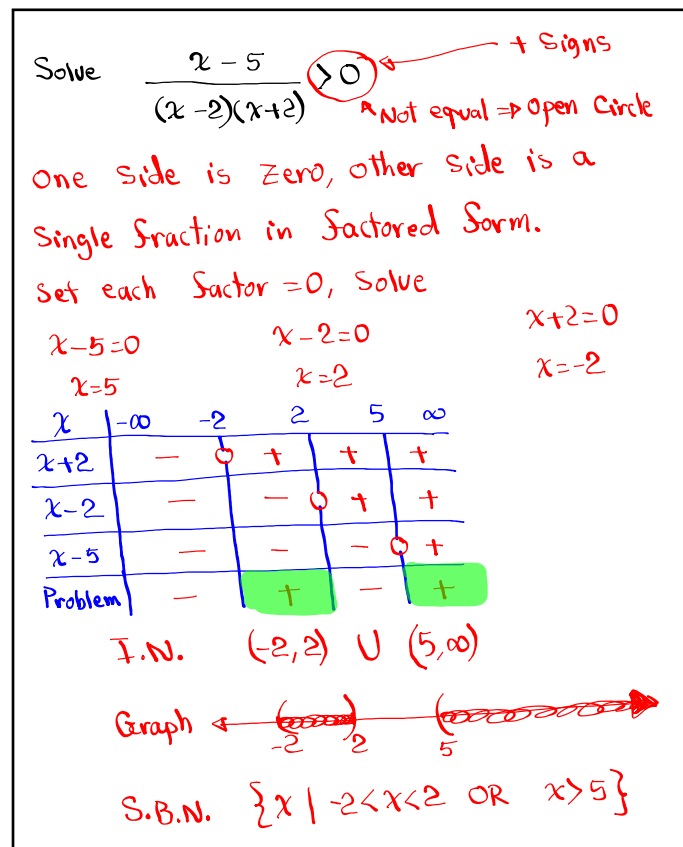 Solve (x-5)/((x-2)(x+2)) > 0 + Signs
Not equal ⇒ Open Circle
One side is Zero, other side is a
Single fraction in factored form.
Set each factor =0, Solve
x-5=0 x-2=0 x+2=0
x=5 x=2 x=-2
x -∞ -2 2 5 ∞
x+2 - 0 + + +
x-2 - - 0 + +
x-5 - - - 0 +
Problem - + - +
I.N. (-2,2) ∪ (5,∞)
Graph ( ) (
-2 2 5
S.B.N. {x | -2<x<2 OR x>5}